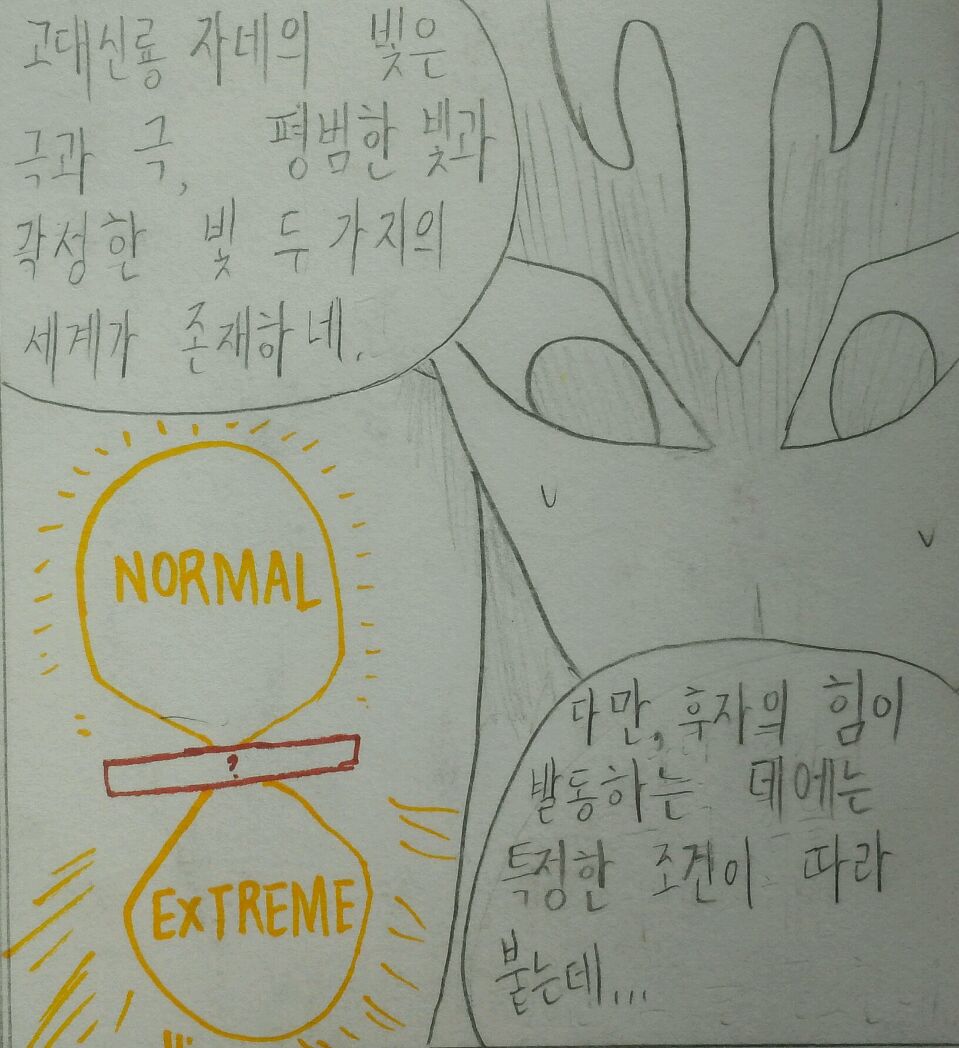 고대신룡 자네의 빛은
극과 극, 평범한 빛과
각성한 빛 두 가지의
세계가 존재하네.
NORMAL
?
EXTREME
다만, 후자의 힘이
발동하는 데에는
특정한 조건이 따라
붙는데...